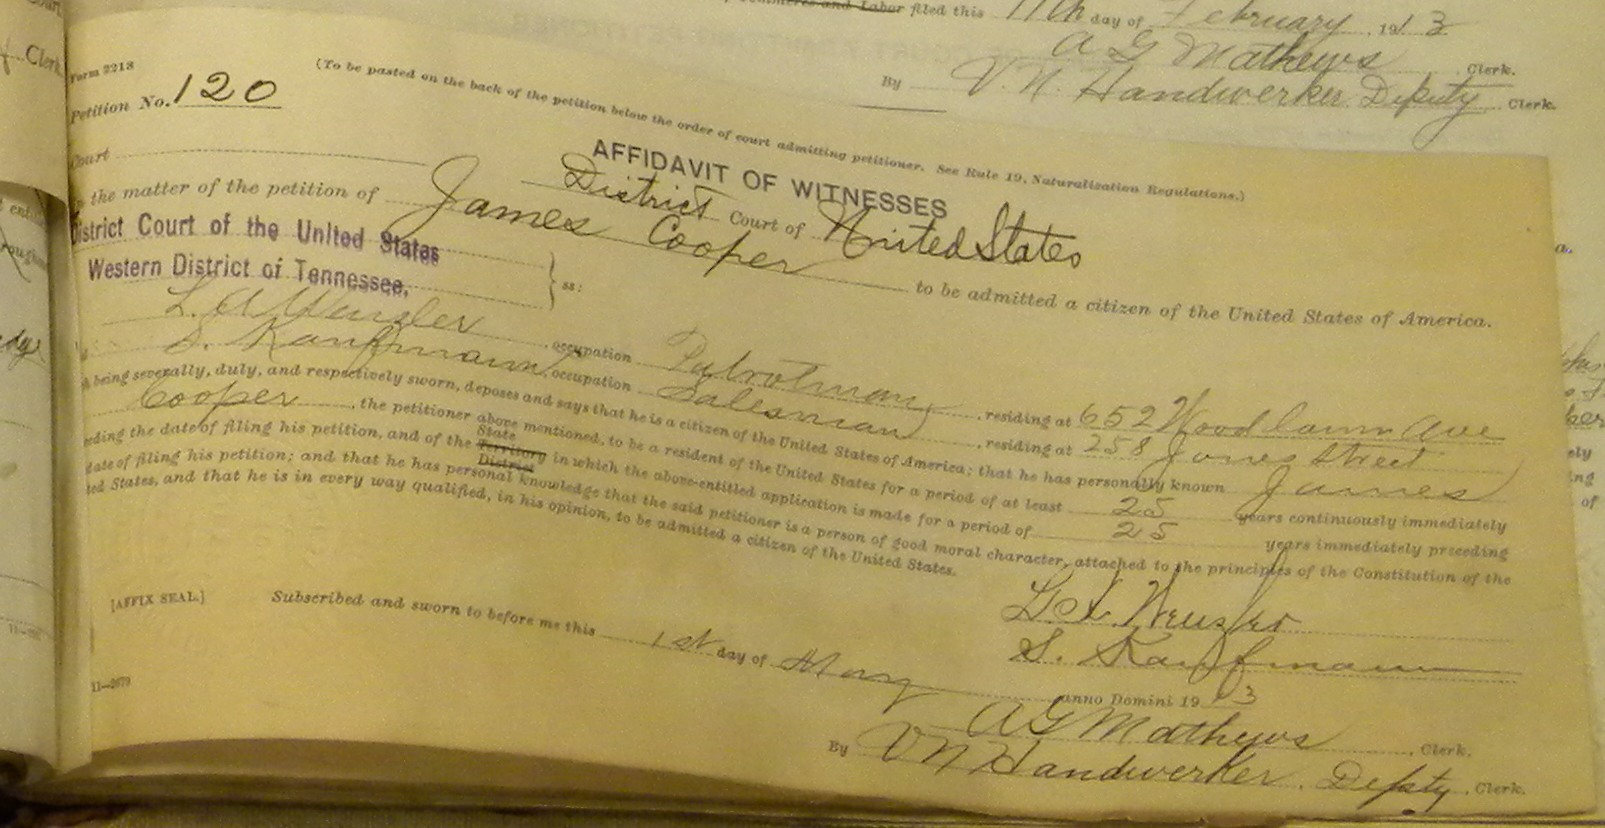 and Labor filed this 11th day of February, 1913
A G Mathews Clerk.
By V. N. Handwerker Deputy Clerk.
Clerk
Form 2218
Petition No. 120
(To be pasted on the back of the petition below the order of court admitting petitioner. See Rule 19, Naturalization Regulations.)
AFFIDAVIT OF WITNESSES
Court
District Court of United States
In the matter of the petition of James Cooper to be admitted a citizen of the United States of America.
District Court of the United States
Western District of Tennessee. } ss:
occupation Patrolman, residing at 652 Woodlawn Ave
S. Kaufmann, occupation Salesman, residing at 258 Jones Street
being severally, duly, and respectively sworn, deposes and says that he is a citizen of the United States of America; that he has personally known James
Cooper, the petitioner above mentioned, to be a resident of the United States for a period of at least 25 years continuously immediately
the date of filing his petition, and of the State Territory District in which the above-entitled application is made for a period of 25 years immediately preceding
date of filing his petition; and that he has personal knowledge that the said petitioner is a person of good moral character, attached to the principles of the Constitution of the
States, and that he is in every way qualified, in his opinion, to be admitted a citizen of the United States.
S. Kaufmann
[AFFIX SEAL.] Subscribed and sworn to before me this 1st day of May anno Domini 1913
A G Mathews, Clerk.
By V N Handwerker, Deputy Clerk.
11—2679